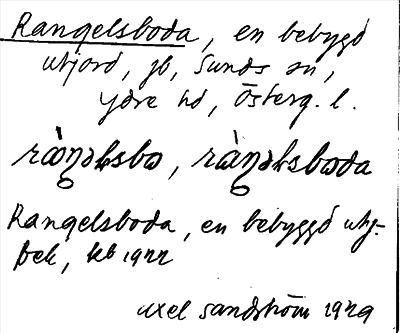 Rangelsboda, en bebygd
utjord, jb, Sunds sn,
Ydre hd, Österg. l.
ràŋəlsbω, ràŋəlsbωda
Rangelsboda, en bebyggd utj-
Bek, kb 1922
Axel Sandström 1929